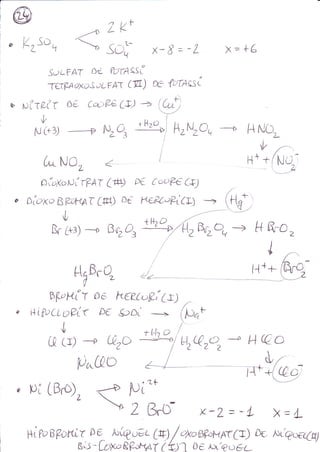 24
• K₂SO₄ 2 K⁺
SO₄²⁻ x-8=-2 x=+6
SULFAT DE POTASSI
TETRAOXOSULFAT (VI) DE POTASSI
• NITRIT DE COURE (I) → Cu⁺
↓
N(+3) → N₂O₃ +H₂O → H₂N₂O₄ → HNO₂
↓
CuNO₂ ← H⁺ + NO₂⁻
DIOXONITRAT (III) DE COURE (I)
• DIOXOBROMAT (III) DE MERCURI (I) → Hg⁺
↓
Br (+3) → Br₂O₃ +H₂O → H₂Br₂O₄ → HBrO₂
↓
HgBrO₂ H⁺ + BrO₂⁻
BROMIT DE MERCURI (I)
• HIPOCLORIT DE SODI → Na⁺
↓
Cl (I) → Cl₂O +H₂O → H₂Cl₂O₂ → HClO
↓
NaClO ← H⁺ + ClO⁻
• Ni (BrO)₂ Ni²⁺
2 BrO⁻ x-2=-1 x=1
HIPOBROMIT DE NÍQUEL (II) / OXOBROMAT (I) DE NÍQUEL (II)
BIS-[OXOBROMAT (I)] DE NÍQUEL